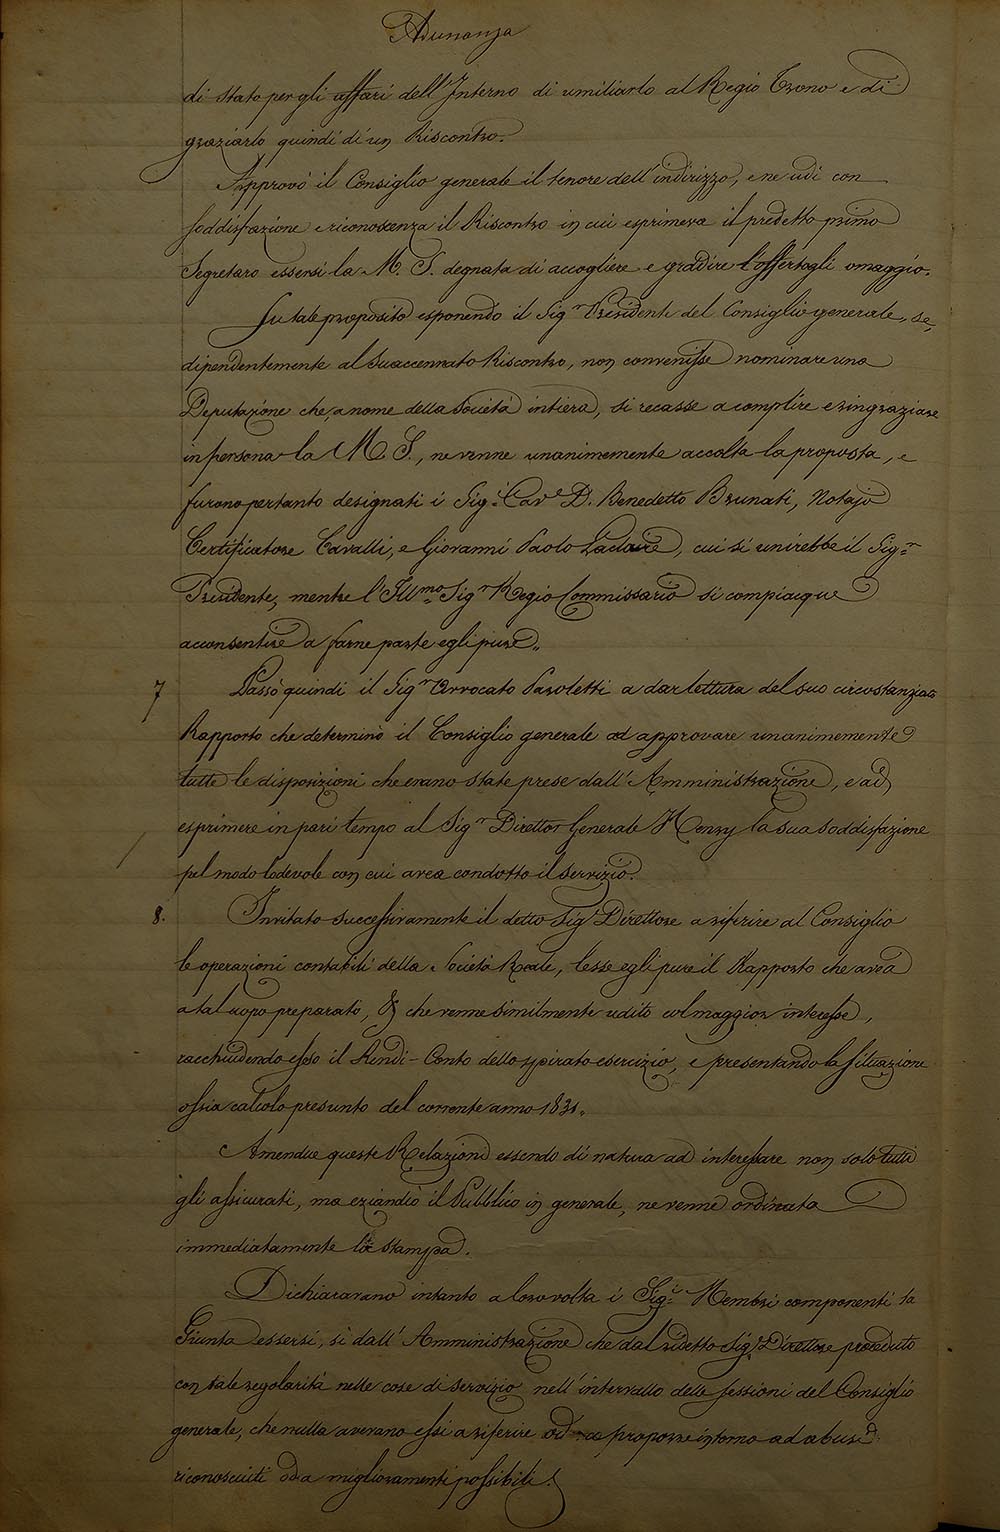 Adunanza
di Stato per gli affari dell'Interno di umiliarlo al Regio Trono e di
graziarlo quindi di un Riscontro.
Approvò il Consiglio generale il tenore dell'indirizzo, e ne udì con
soddisfazione e riconoscenza il Riscontro in cui esprimeva il predetto primo
Segretaro essersi la M. S. degnata di accogliere e gradire l'offertogli omaggio.
Su tale proposito esponendo il Sigr Presidente del Consiglio generale, se,
dipendentemente al suaccennato Riscontro, non convenisse nominare una
Deputazione che, a nome della Società intiera, si recasse a complire e ringraziare
in persona la M. S., ne venne unanimemente accolta la proposta, e
furono pertanto designati i Sigi Cave D. Benedetto Brunati, Notajo
Certificatore Cavalli, e Giovanni Paolo Laclaire, cui si unirebbe il Sigr
Presidente, mentre l'Illmo Sigr Regio Commissario si compiacque
acconsentire a farne parte egli pure.
7 Passò quindi il Sigr Avvocato Paroletti a dar lettura del suo circostanziato
Rapporto che determinò il Consiglio generale ad approvare unanimemente
tutte le disposizioni che erano state prese dall'Amministrazione, e ad
esprimere in pari tempo al Sigr Direttor Generale Henry la sua soddisfazione
pel modo lodevole con cui avea condotto il servizio.
8. Invitato successivamente il detto Sigr Direttore a riferire al Consiglio
le operazioni contabili della Società Reale, lesse egli pure il Rapporto che avea
a tal uopo preparato, & che venne similmente udito col maggior interesse,
racchiudendo esso il Rendi-Conto dello spirato esercizio, e presentando la situazione
ossia calcolo presunto del corrente anno 1831.
Amendue queste Relazioni essendo di natura ad interessare non solo tutti
gli assicurati, ma eziandio il Pubblico in generale, ne venne ordinata
immediatamente la stampa.
Dichiararano intanto a loro volta i Sigi Membri componenti la
Giunta essersi, sì dall'Amministrazione che dal ridetto Sigr Direttore proceduto
con tale regolarità nelle cose di servizio nell'intervallo delle sessioni del Consiglio
generale, che nulla aveano essi a riferire od a proporre intorno ad abusi
riconosciuti od a miglioramenti possibili.